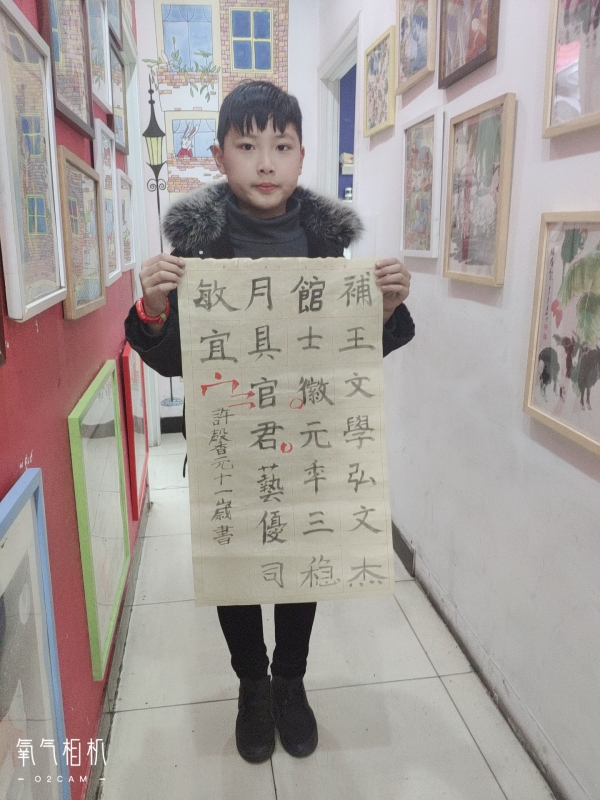 補王文學弘文杰
館士徽元年三稳
月具官君藝優司
敏宜
許啟杳元十一歲書
氧气相机
- O2CAM -